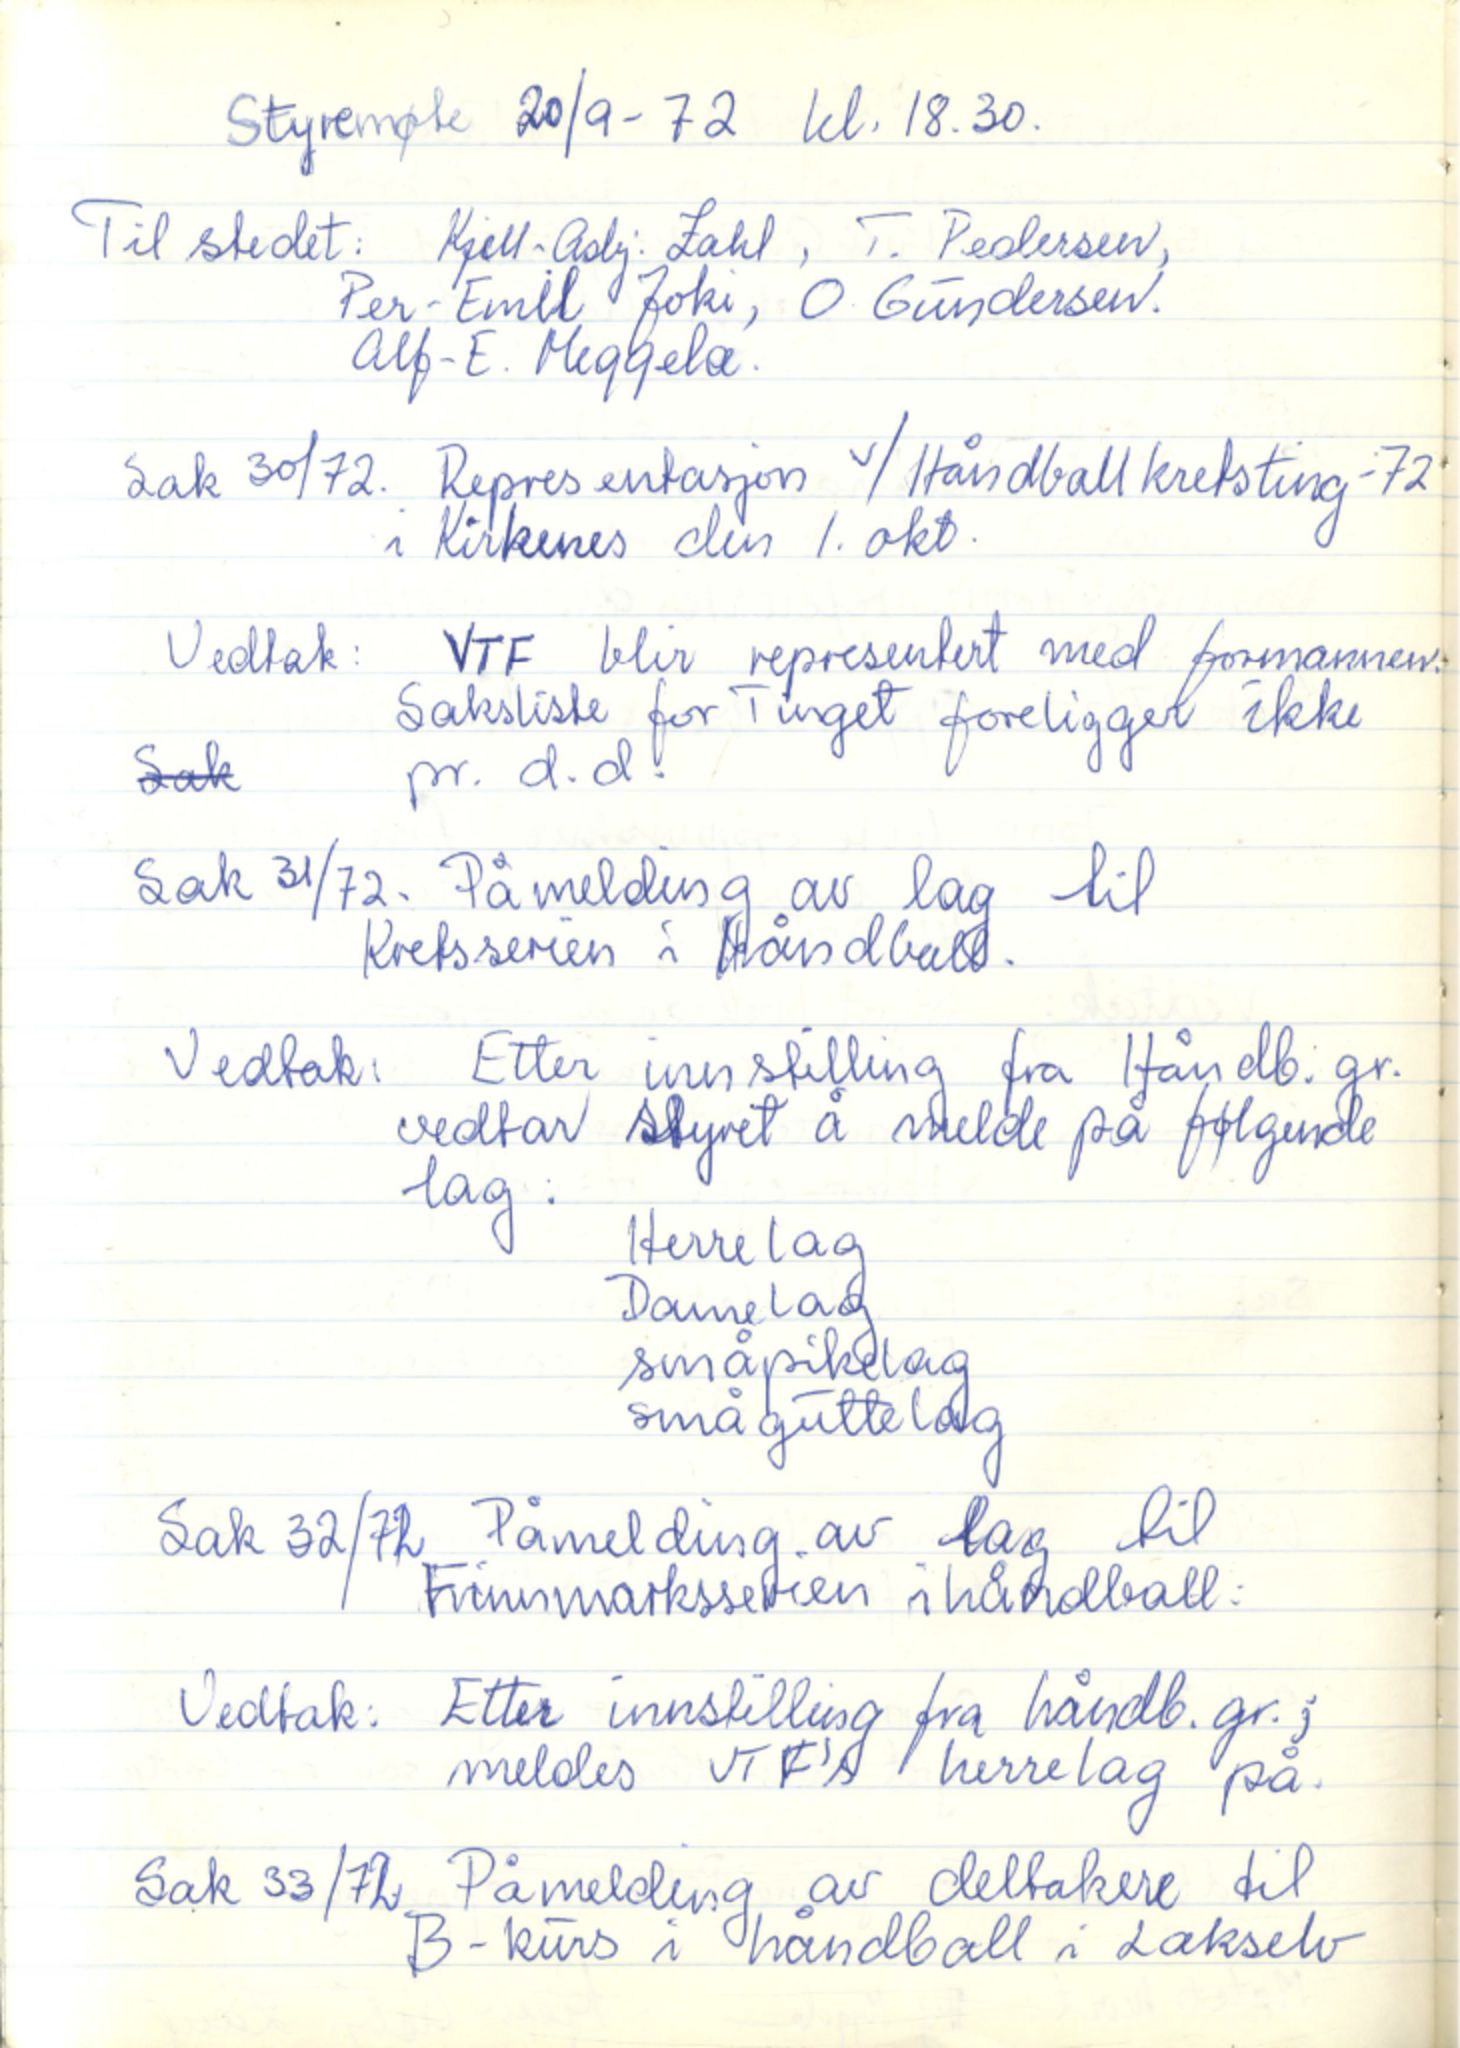 Styremøte 20/9-72 kl. 18.30.
Til stedet: Kjell-Asbj. Zahl, T. Pedersen,
Per-Emil Joki, O. Gundersen.
Alf-E. Meggela.
Sak 30/72. Representasjon v/Håndballkretsting-72
i Kirkenes den 1. okt.
Vedtak: VTF blir representert med formannen.
Saksliste for Tinget foreligger ikke
Sak pr. d.d.
Sak 31/72. Påmelding av lag til
Kretsserien i Håndball.
Vedtak: Etter innstilling fra Håndb. gr.
vedtar styret å melde på følgende
lag:
Herrelag
Damelag
småpikelag
småguttelag
Sak 32/72 Påmelding av lag til
Finnmarksserien i håndball:
Vedtak: Etter innstilling fra håndb. gr.;
meldes VTF's herrelag på.
Sak 33/72 Påmelding av deltakere til
B-kurs i håndball i Lakselv